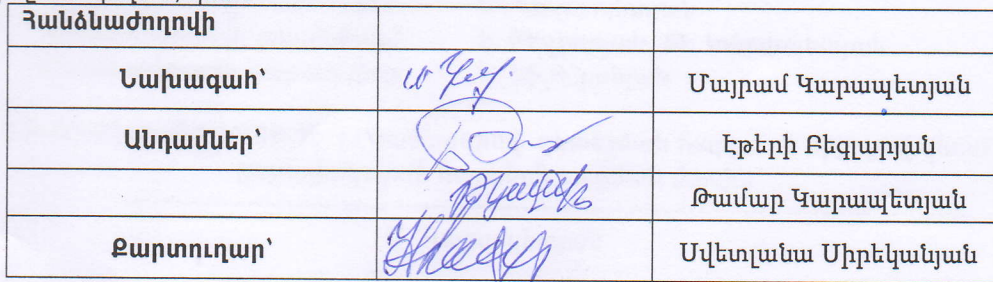 Հանձնաժողովի
Նախագահ՝ Մայրամ Կարապետյան
Անդամներ՝ Էթերի Բեզարյան
Թամար Կարապետյան
Քարտուղար՝ Սվետլանա Սիրեկանյան